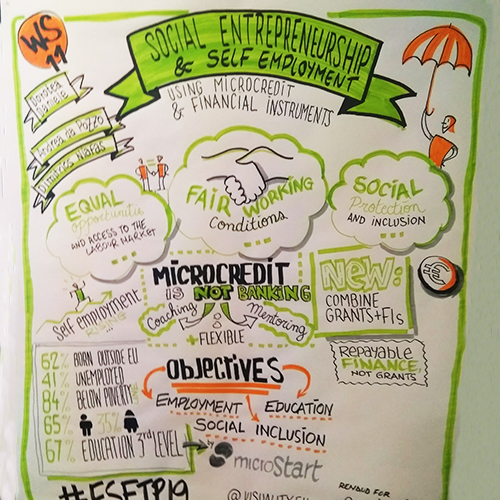 WS
11
SOCIAL ENTREPRENEURSHIP
& SELF EMPLOYMENT
USING MICROCREDIT
& FINANCIAL INSTRUMENTS
Dorotea
Daniele
Andrea de Pozzo
Dimitrios Niafas
EQUAL
opportunities
AND ACCESS TO THE
LABOUR MARKET
FAIR WORKING
Conditions
SOCIAL
Protection
AND INCLUSION
Self employment
MICROCREDIT
IS NOT BANKING
Coaching
Mentoring
+FLEXIBLE
NEW:
COMBINE
GRANTS+FIs
REPAYABLE
FINANCE,
NOT GRANTS
62% BORN OUTSIDE EU
41% UNEMPLOYED
84% BELOW POVERTY
65% 35%
67% EDUCATION 3rd LEVEL
by microStart
OBJECTIVES
EMPLOYMENT
EDUCATION
SOCIAL INCLUSION
#ESFTP19